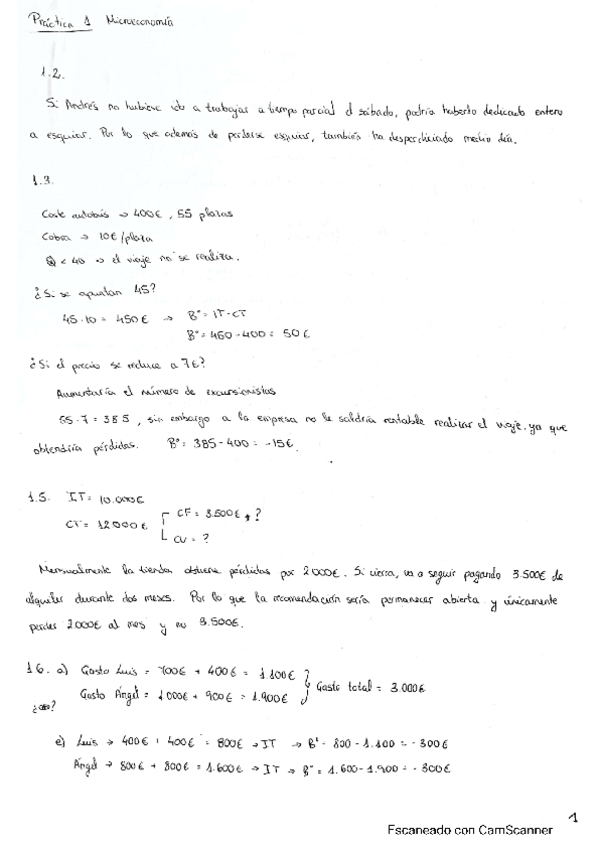 Práctica 1 Microeconomía
1.2.
Si Andrés no hubiese ido a trabajar a tiempo parcial el sábado, podría haberlo dedicado entero
a esquiar. Por lo que además de perderse esquiar, también ha desperdiciado medio día.
1.3.
Coste autobús → 400€, 55 plazas
Cobra → 10€/plaza
Q < 40 → el viaje no se realiza.
¿Si se apuntan 45?
45·10 = 450€ → Bº = IT-CT
Bº = 450-400 = 50€
¿Si el precio se reduce a 7€?
Aumentaría el número de excursionistas
55·7 = 385, sin embargo a la empresa no le saldría rentable realizar el viaje, ya que
obtendría pérdidas. Bº = 385-400 = -15€.
1.5. IT = 10.000€
CT = 12000€ CF = 3.500€, ?
CV = ?
Mensualmente la tienda obtiene pérdidas por 2000€. Si cierra, va a seguir pagando 3.500€ de
alquiler durante dos meses. Por lo que la recomendación sería permanecer abierta y únicamente
perder 2000€ al mes y no 3.500€.
1.6. a) Gasto Luis = 700€ + 400€ = 1.100€
Gasto Ángel = 1000€ + 900€ = 1.900€ Gasto total = 3.000€
e) Luis → 400€ + 400€ = 800€ → IT → Bº = 800-1.100 = -300€
Ángel → 800€ + 800€ = 1.600€ → IT → Bº = 1.600-1.900 = -300€
1
Escaneado con CamScanner